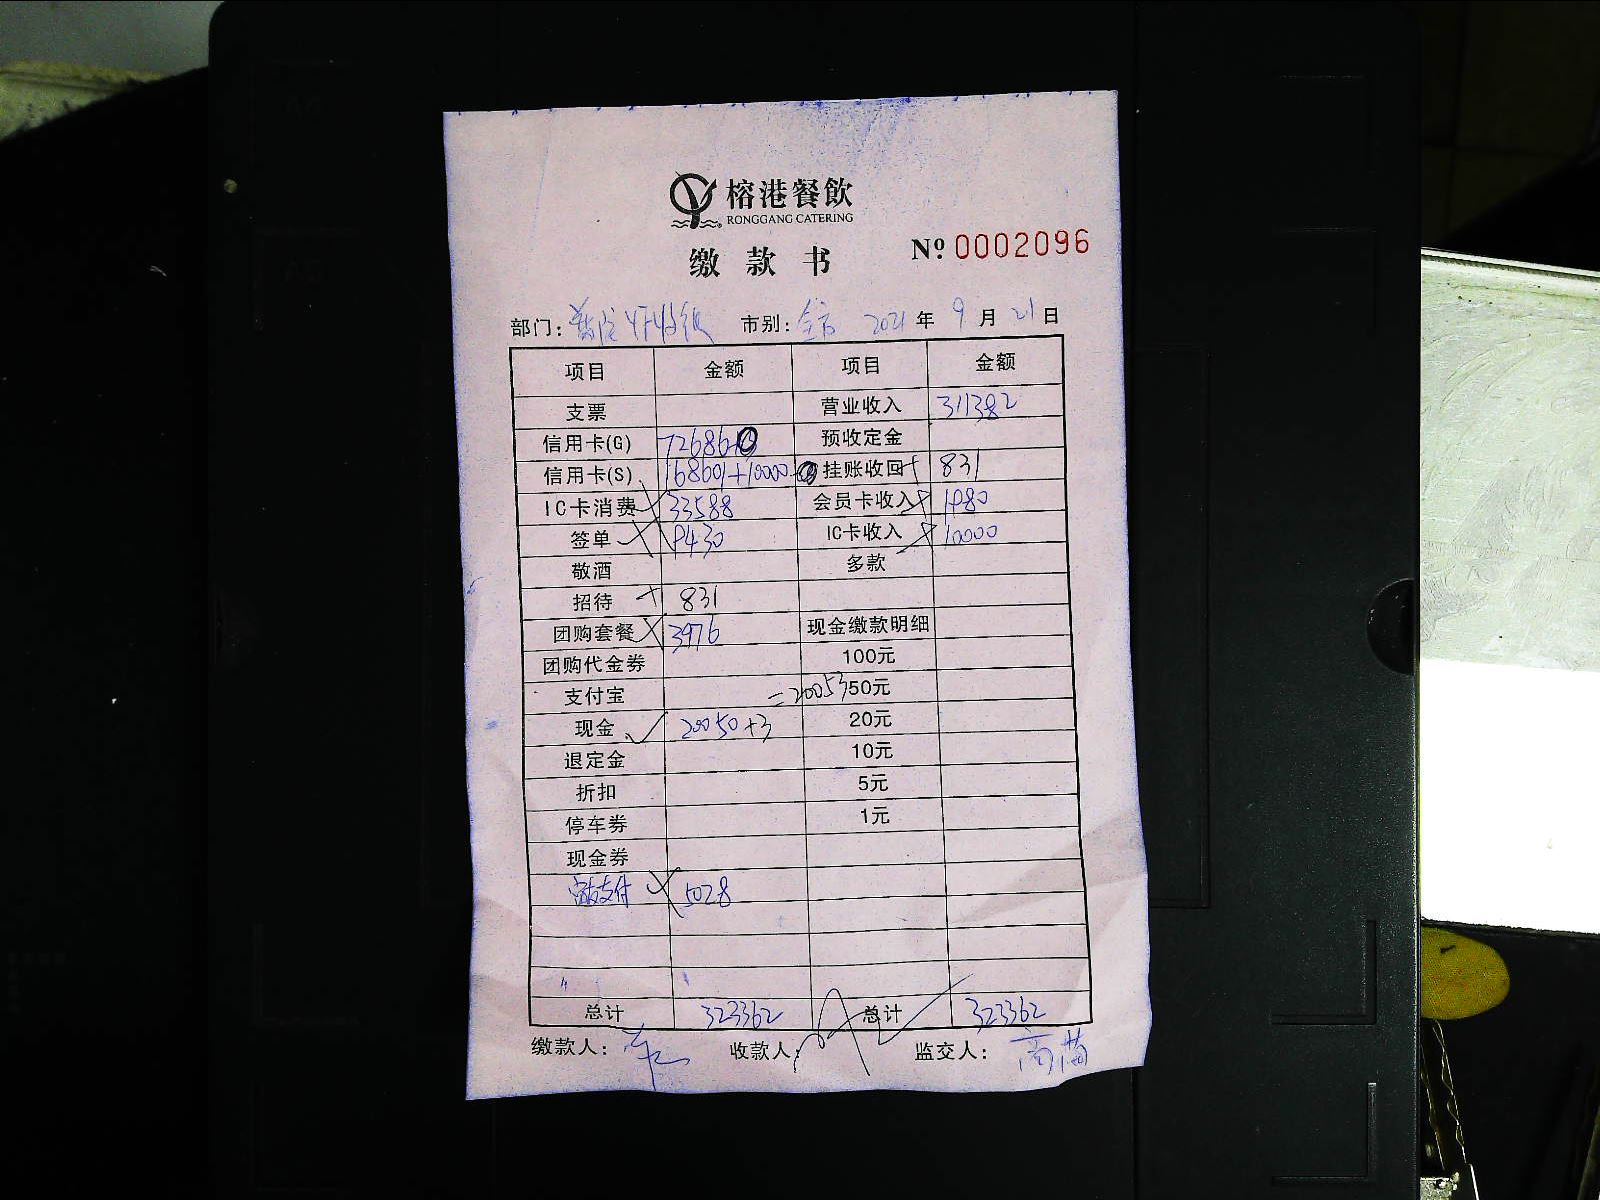 榕港餐飲
RONGGANG CATERING
缴款书 Nº 0002096
部门: 市别: 全市 2021年9月21日
项目 金额 项目 金额
支票 营业收入 311382
信用卡(G) 72686 预收定金
信用卡(S) 168601+10000 挂账收回 831
IC卡消费 33588 会员卡收入
签单 IC卡收入 10000
敬酒 多款
招待 831
团购套餐 3976 现金缴款明细
团购代金券 100元
支付宝 =20053 50元
现金 20050+3 20元
退定金 10元
折扣 5元
停车券 1元
现金券
支付 5028
总计 323362 总计 323362
缴款人: 收款人: 监交人: